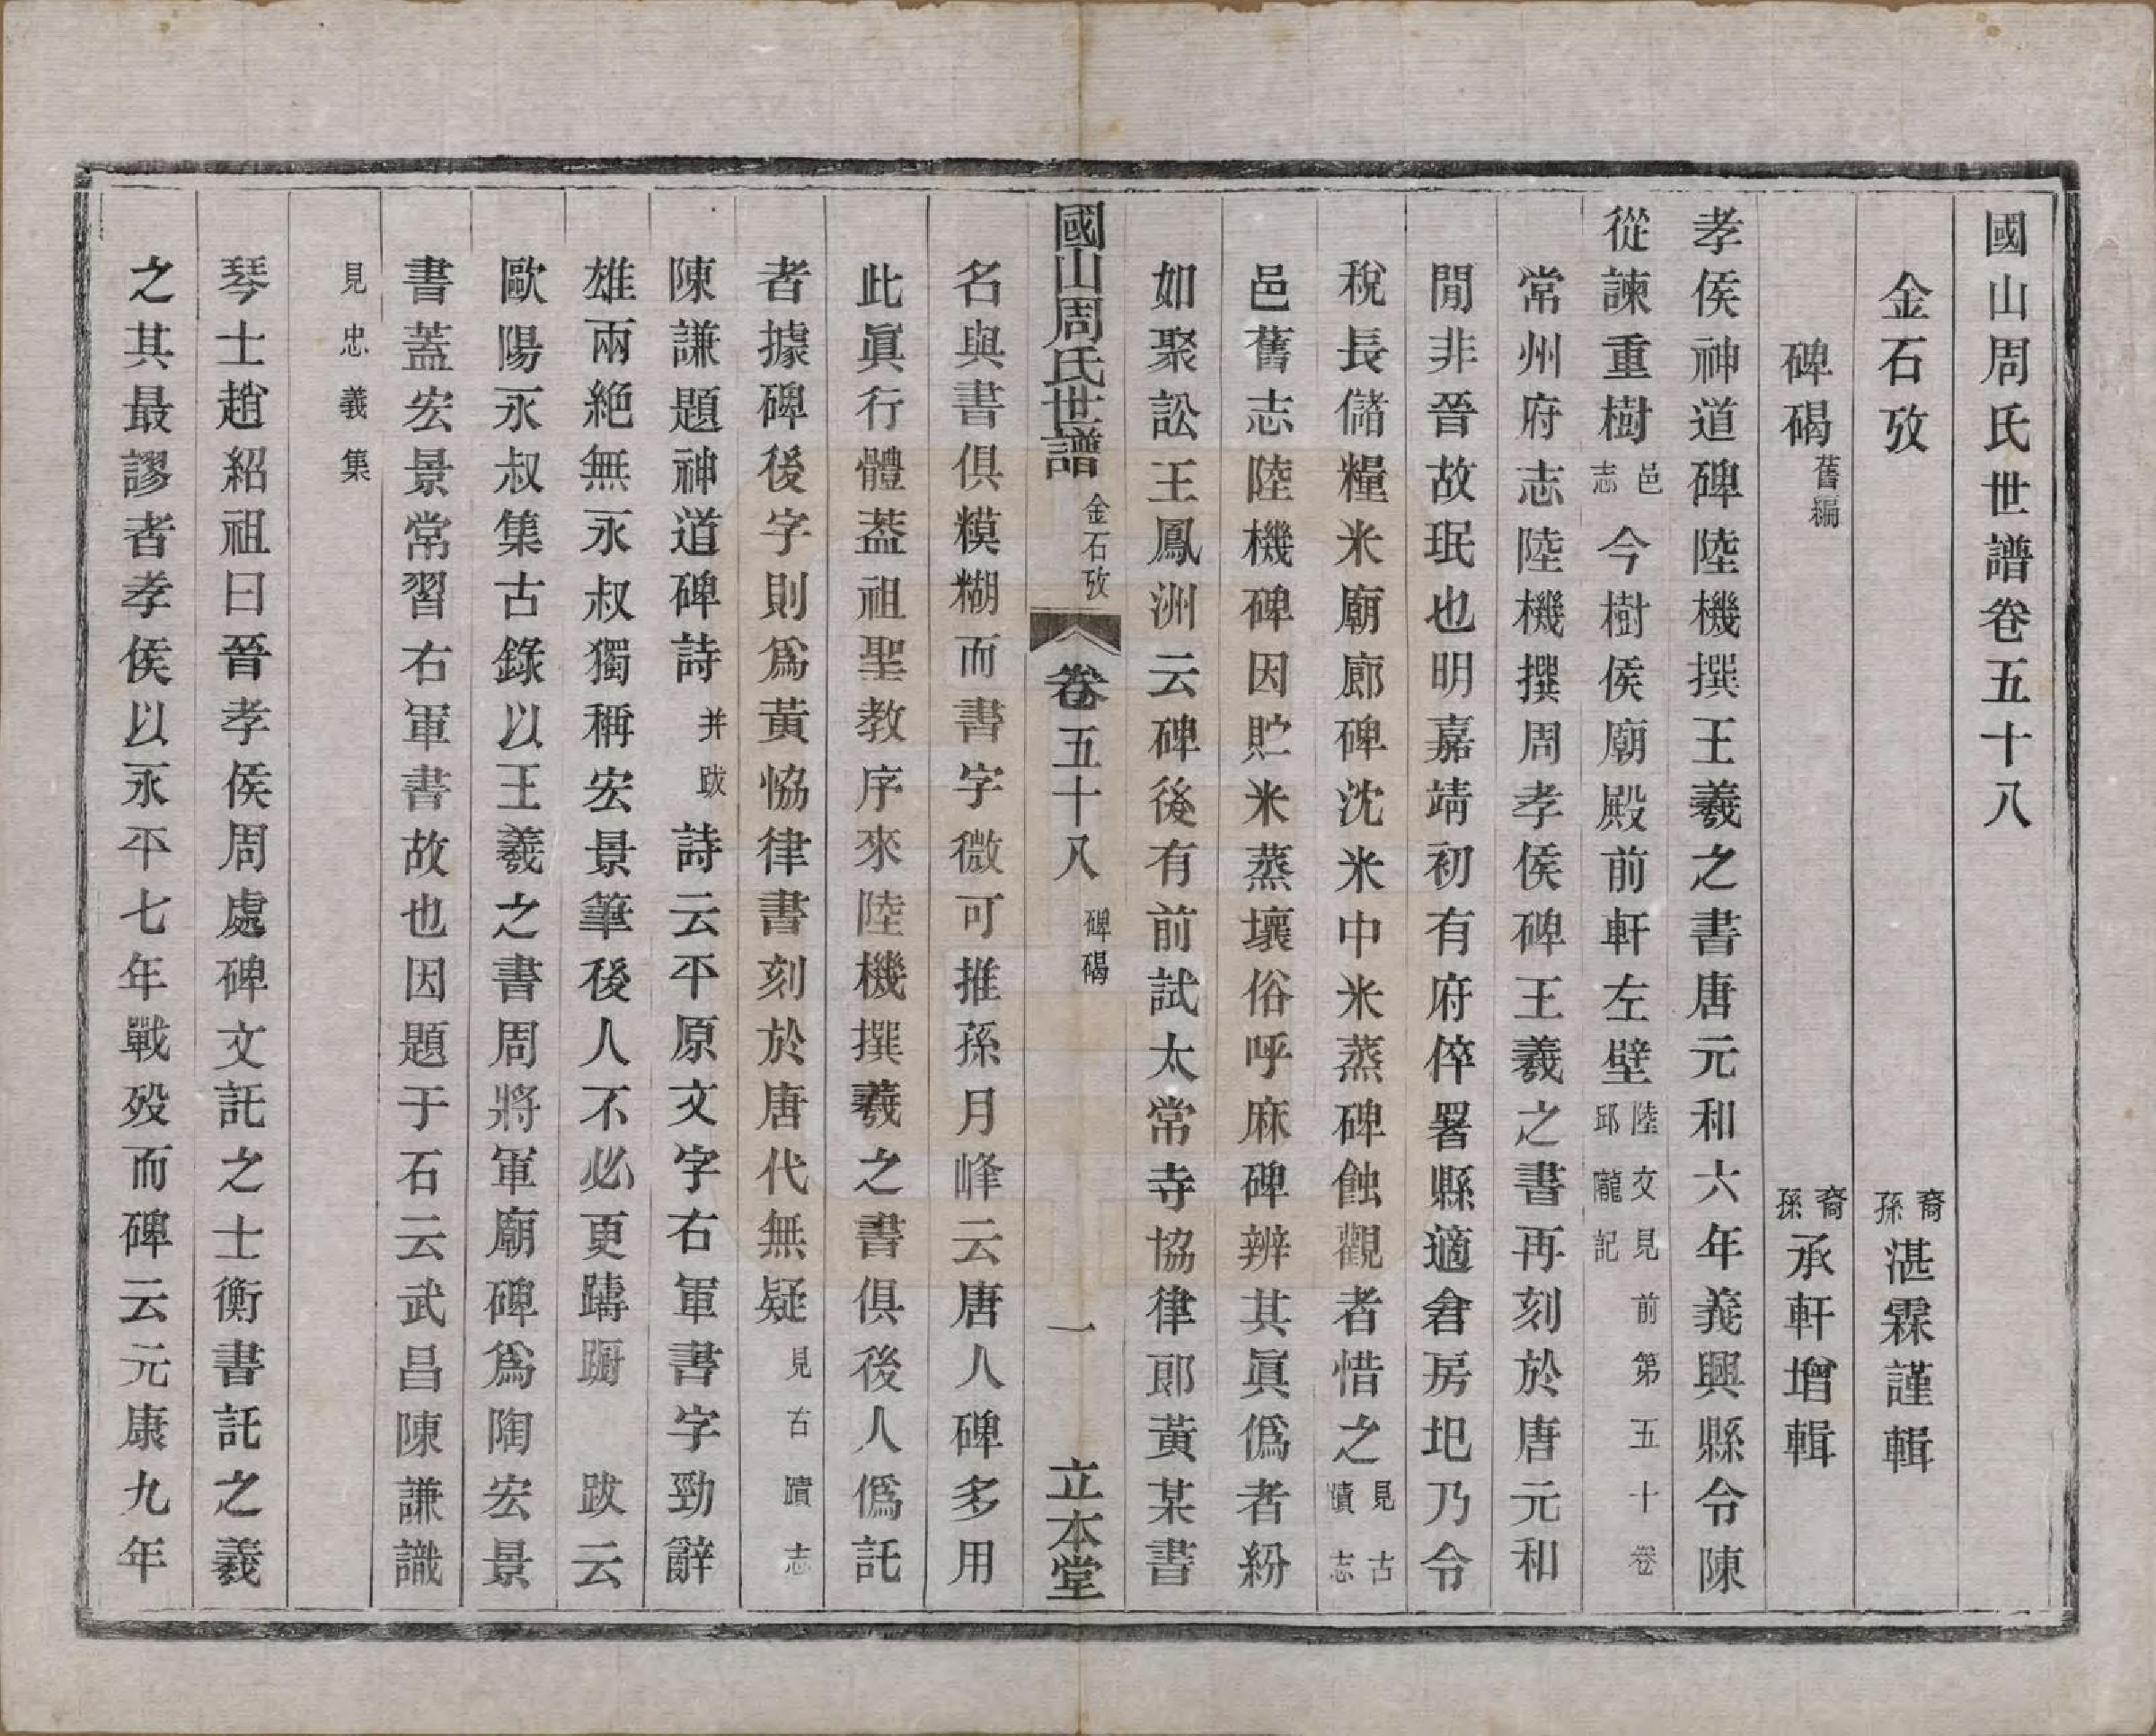 國山周氏世譜卷五十八
金石攷 裔孫湛霖謹輯
碑碣舊編 裔孫承軒增輯
孝侯神道碑陸機撰王羲之書唐元和六年義興縣令陳
從諫重樹邑志今樹侯廟殿前軒左壁陸交見前第五十卷邱隴記
常州府志陸機撰周孝侯碑王羲之書再刻於唐元和
閒非晉故珉也明嘉靖初有府倅署縣適倉房圯乃令
稅長儲糧米廟廊碑沈米中米蒸碑蝕觀者惜之見古蹟志
邑舊志陸機碑因貯米蒸壞俗呼麻碑辨其眞僞者紛
如聚訟王鳳洲云碑後有前試太常寺協律郎黃某書
國山周氏世譜 金石攷 卷五十八 碑碣 一 立本堂
名與書俱糢糊而書字微可推孫月峰云唐人碑多用
此眞行體葢祖聖教序來陸機撰羲之書俱後人僞託
者據碑後字則爲黃恊律書刻於唐代無疑見古蹟志
陳謙題神道碑詩并跋詩云平原文字右軍書字勁辭
雄兩絕無永叔獨稱宏景筆後人不必更躊躕 跋云
歐陽永叔集古錄以王羲之書周將軍廟碑爲陶宏景
書蓋宏景常習右軍書故也因題于石云武昌陳謙識
見忠義集
琴士趙紹祖曰晉孝侯周處碑文託之士衡書託之羲
之其最謬者孝侯以永平七年戰歿而碑云元康九年